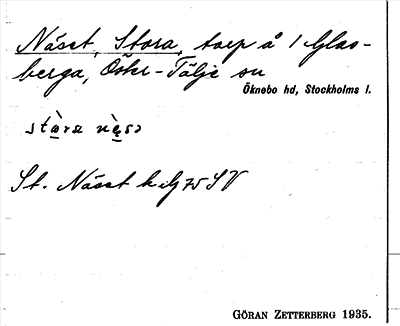 Näset, Stora, torp å 1 Glas-
berga, Öster-Tälje sn
Öknebo hd, Stockholms l.
St. Näset h ilj 75 SV
GÖRAN ZETTERBERG 1935.